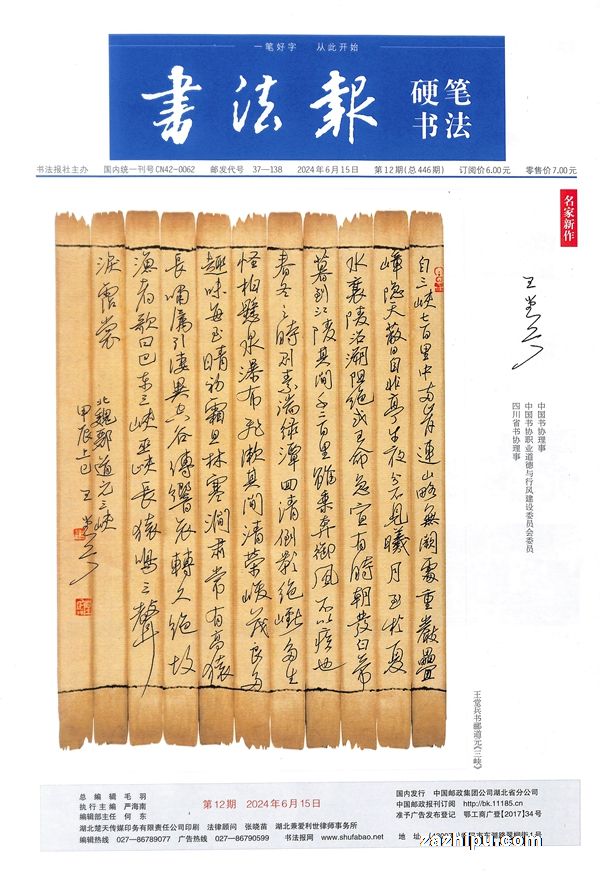 一笔好字 从此开始
书法报
硬笔
书法
书法报社主办 国内统一刊号CN42-0062 邮发代号 37—138 2024年6月15日 第12期(总446期) 订阅价6.00元 零售价7.00元
名家新作
王堂兵
中国书协理事
中国书协职业道德与行风建设委员会委员
四川省书协理事
自三峡七百里中两岸連山略無闕處重巖疊
嶂隐天蔽日自非亭午夜分不見曦月至於夏
水襄陵沿溯阻絶或王命急宣有時朝發白帝
暮到江陵其间千二百里雖乘奔御風不以疾也
春冬之時則素湍绿潭回清倒影絶巘多生
怪柏懸泉瀑布飛漱其间清荣峻茂良多
趣味每至晴初霜旦林寒澗肃常有高猿
長嘯属引凄異空谷傳響哀轉久絶故
漁者歌曰巴东三峡巫峡長猿鳴三聲
淚霑裳
北魏郦道元三峡
甲辰上巳 王堂兵
王堂兵书郦道元《三峡》
总编辑 毛羽
执行主编 严海南
编辑部主任 何东
第12期 2024年6月15日
国内发行 中国邮政集团公司湖北省分公司
中国邮政报刊订阅 http://bk.11185.cn
准予广告发布登记 鄂工商广登[2017]34号
湖北楚天传媒印务有限责任公司印刷 法律顾问 张晓苗 湖北兼爱利世律师事务所
编辑热线 027—86789077 广告热线 027—86790599 书法报网 www.shufabao.net 地址
zazhipu.com